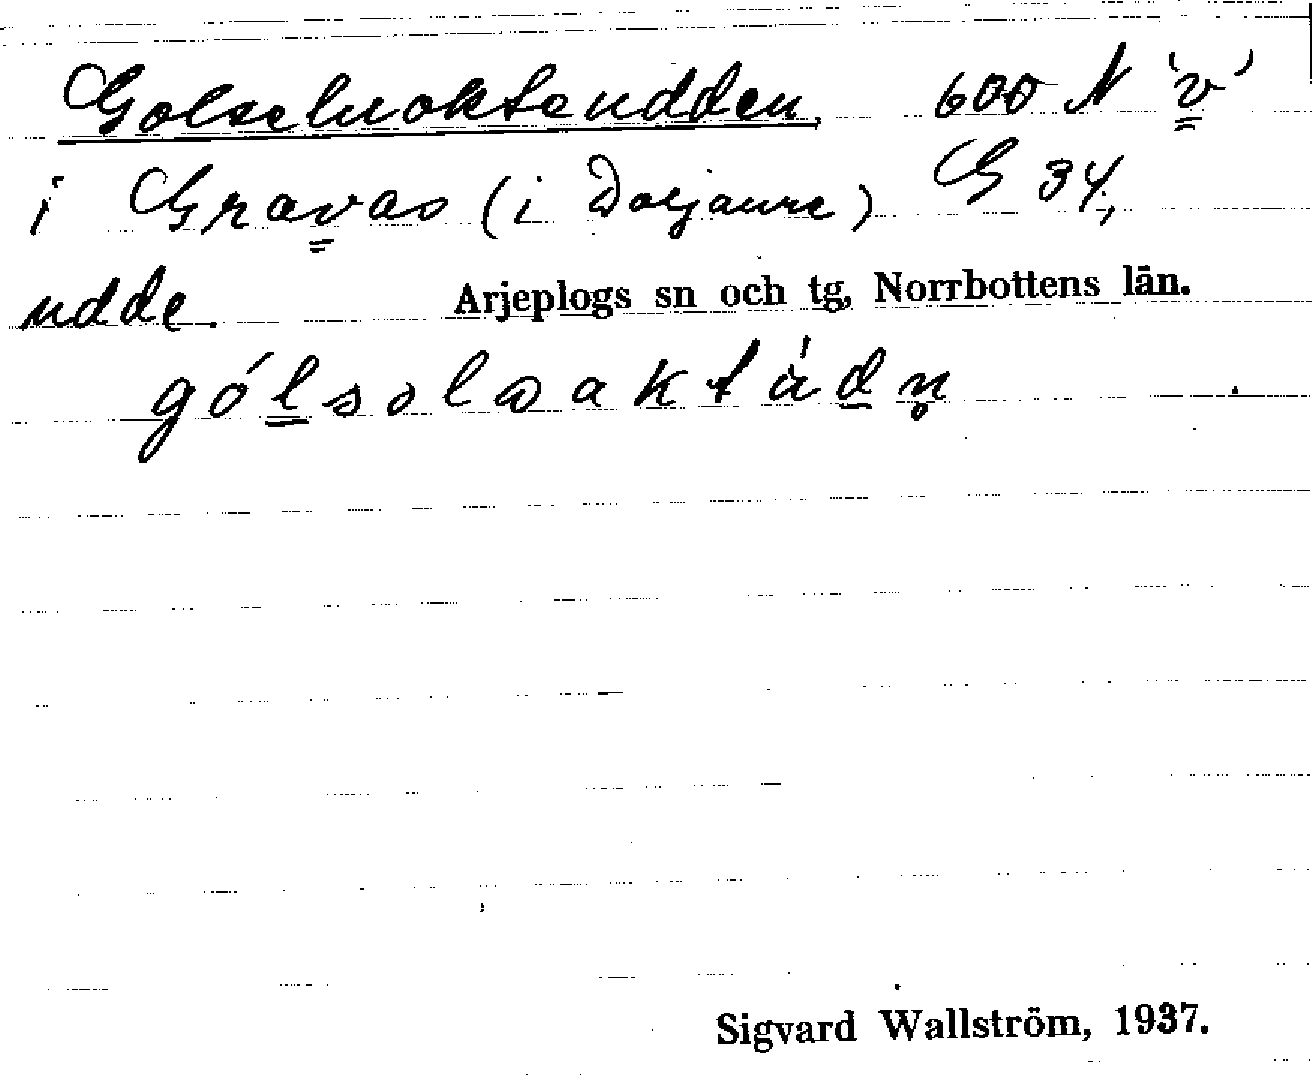 Golseluoktaudden. 600 N 'v'
i Gravas (i Dorjaure) G 34,
udde. Arjeplogs sn och tg, Norrbottens län.
gólsəlwaktádn̥
Sigvard Wallström, 1937.